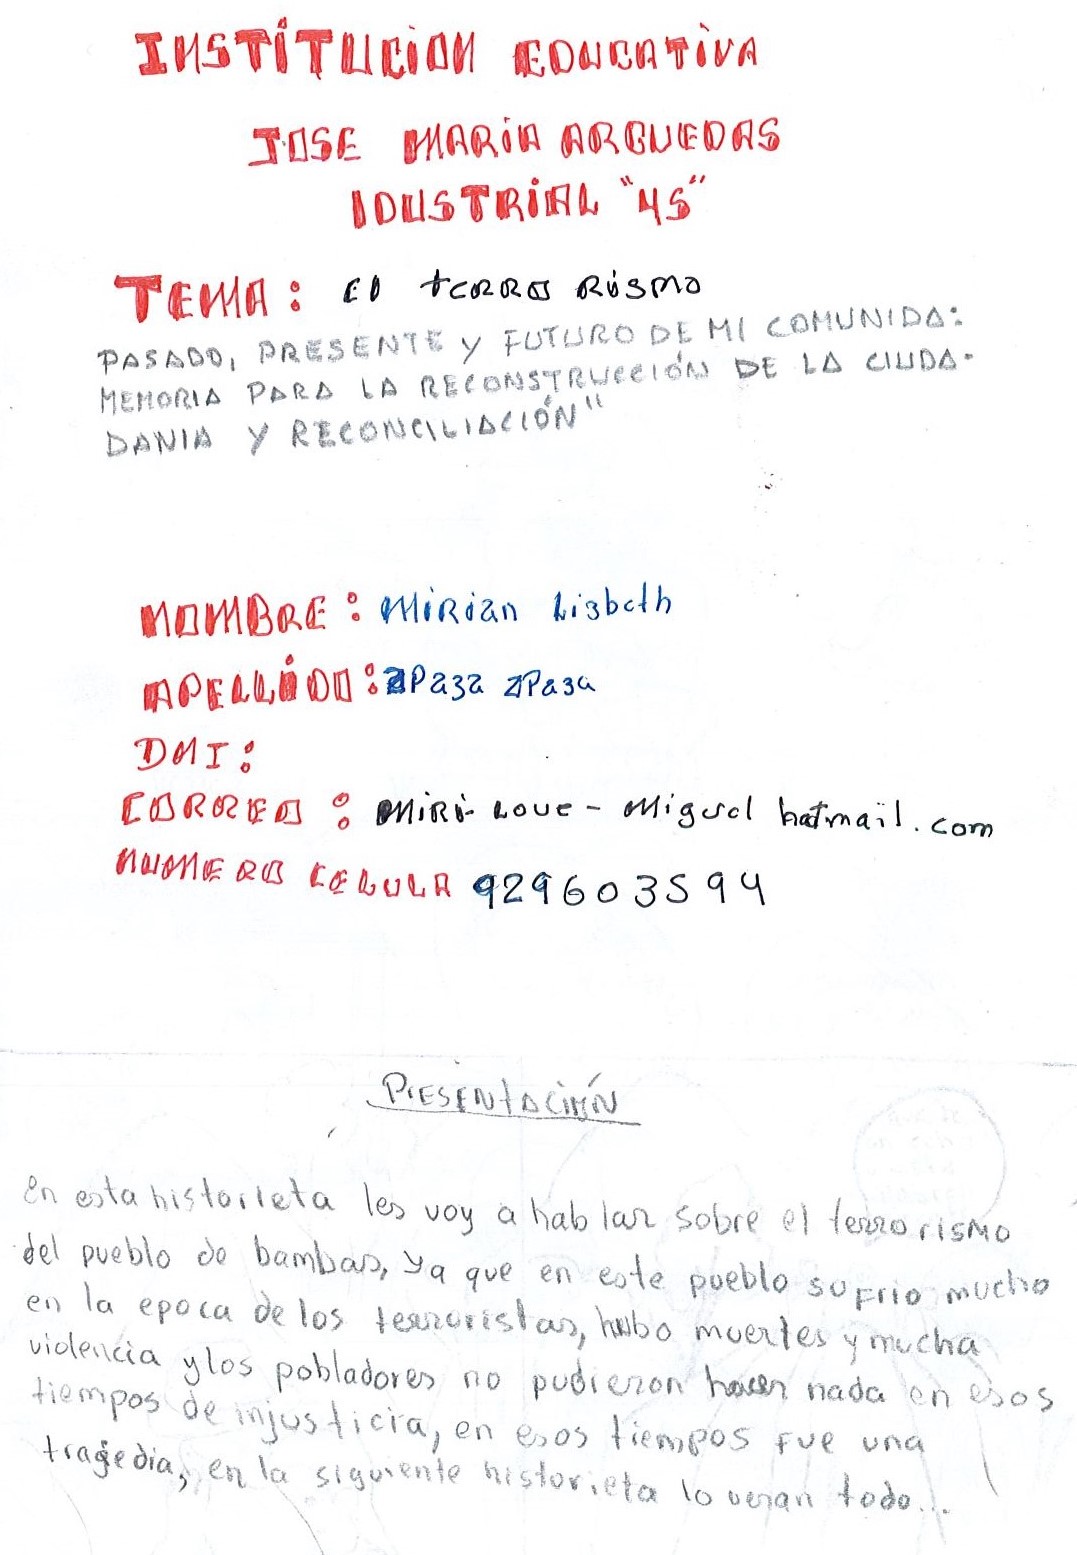 INSTITUCION EDUCATIVA
JOSE MARIA ARGUEDAS
IDUSTRIAL "45"
TEMA: El terrorismo
PASADO, PRESENTE Y FUTURO DE MI COMUNIDA:
MEMORIA PARA LA RECONSTRUCCIÓN DE LA CIUDA-
DANIA Y RECONCILIACIÓN"
NOMBRE: Mirian Lisbeth
APELLIDO: apaza apaza
DNI:
CORREO: Miri-Love-Miguel hatmail.com
NUMERO CELULA 929603594
PRESENTACIÓN
En esta historieta les voy a hablar sobre el terrorismo
del pueblo de bambas, ya que en este pueblo sufrio mucho
en la epoca de los terroristas, hubo muertes y mucha
violencia y los pobladores no pudieron hacer nada en esos
tiempos de injusticia, en esos tiempos fue una
tragedia, en la siguiente historieta lo veran todo...